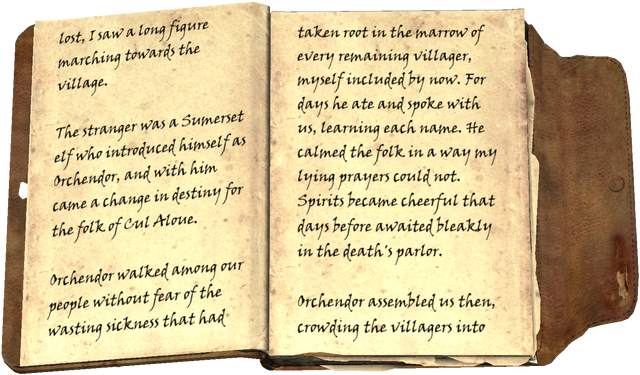 lost, I saw a long figure
marching towards the
village.
The stranger was a Sumerset
elf who introduced himself as
Orchendor, and with him
came a change in destiny for
the folk of Cul Aloue.
Orchendor walked among our
people without fear of the
wasting sickness that had
taken root in the marrow of
every remaining villager,
myself included by now. For
days he ate and spoke with
us, learning each name. He
calmed the folk in a way my
lying prayers could not.
Spirits became cheerful that
days before awaited bleakly
in the death's parlor.
Orchendor assembled us then,
crowding the villagers into